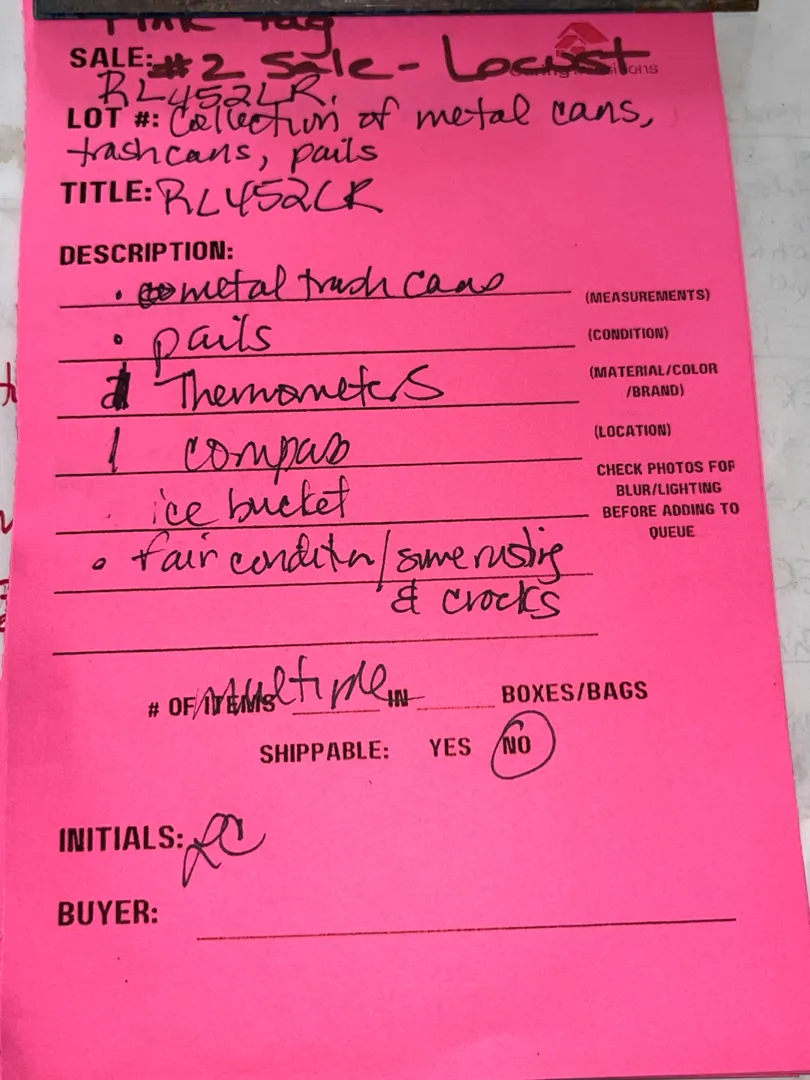 Pink Tag
SALE: #2 Sale - Locust
RL452LR.
LOT #: Collection of metal cans,
trashcans, pails
TITLE: RL452LR
DESCRIPTION:
• metal trash cans
(MEASUREMENTS)
• pails
(CONDITION)
Thermometers
(MATERIAL/COLOR
/BRAND)
1 compass
(LOCATION)
CHECK PHOTOS FOR
BLUR/LIGHTING
BEFORE ADDING TO
QUEUE
· ice bucket
• fair condition/some rusting
& crocks
# OF ITEMS multiple IN BOXES/BAGS
SHIPPABLE: YES NO
INITIALS: LC
BUYER: